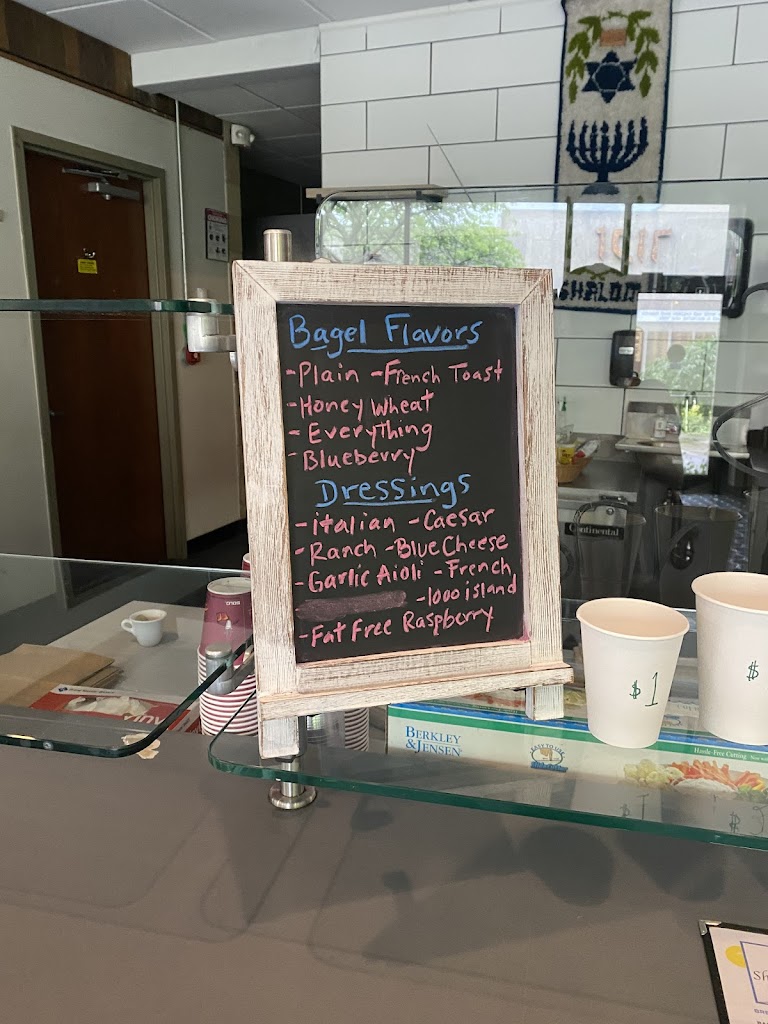 Bagel Flavors
-Plain -French Toast
-Honey Wheat
-Everything
-Blueberry
Dressings
-italian -Caesar
-Ranch -Blue Cheese
-Garlic Aioli -French
-1000 island
-Fat Free Raspberry
SHALOM
Continental
$1
$
BERKLEY
& JENSEN
EASY TO USE
Hassle-Free Cutting
Sh